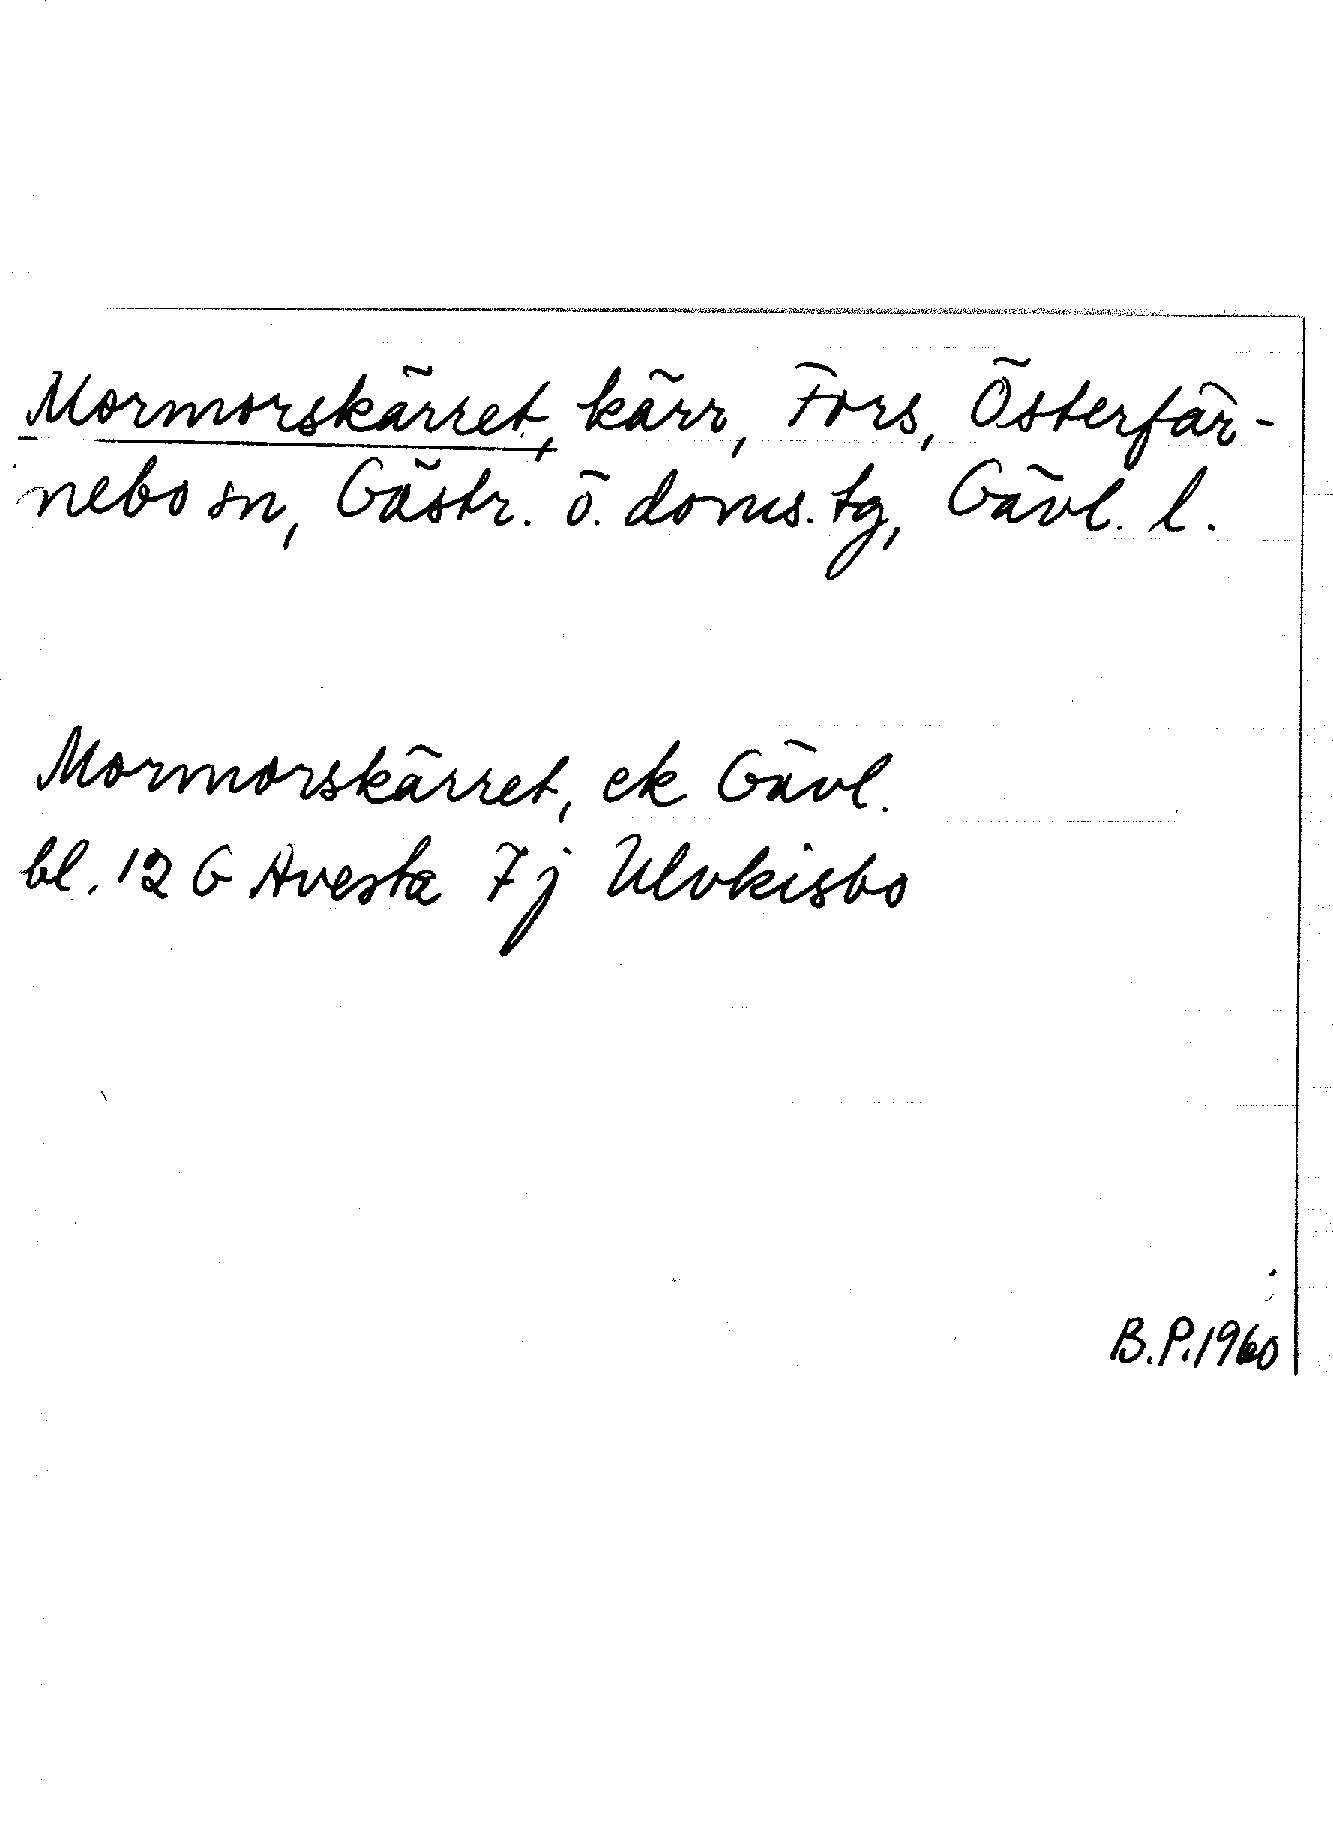 Mormorskärret, kärr, Fors, Österfär-
nebo sn, Gästr. ö. doms. tg, Gävl. l.
Mormorskärret, ek Gävl.
bl. 12 G Avesta 7j Ulvkisbo
B.P. 1960